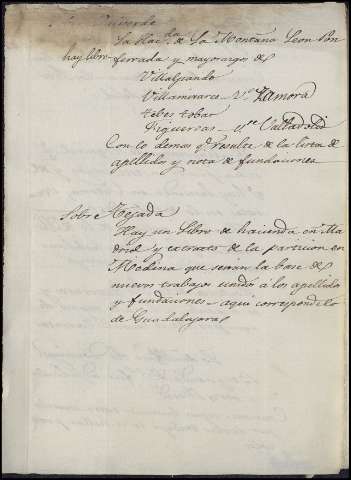 La Hac.da de La Montaña Leon Pon
hay libro ferrada y mayorazgos de
Villalpando
Villamizar Zamora
tobar
Figueroas Valladolid
Con lo demas q.e resulte de la lista de
apellidos y nota de fundaciones
Sobre Tejada
Hay un Libro de hacienda en Ma
drid y extracto de la particion en
Medina que serán la base de
nuevos trabajos unidos a los apellidos
y fundaciones aqui corresponde lo
de Guadalajara